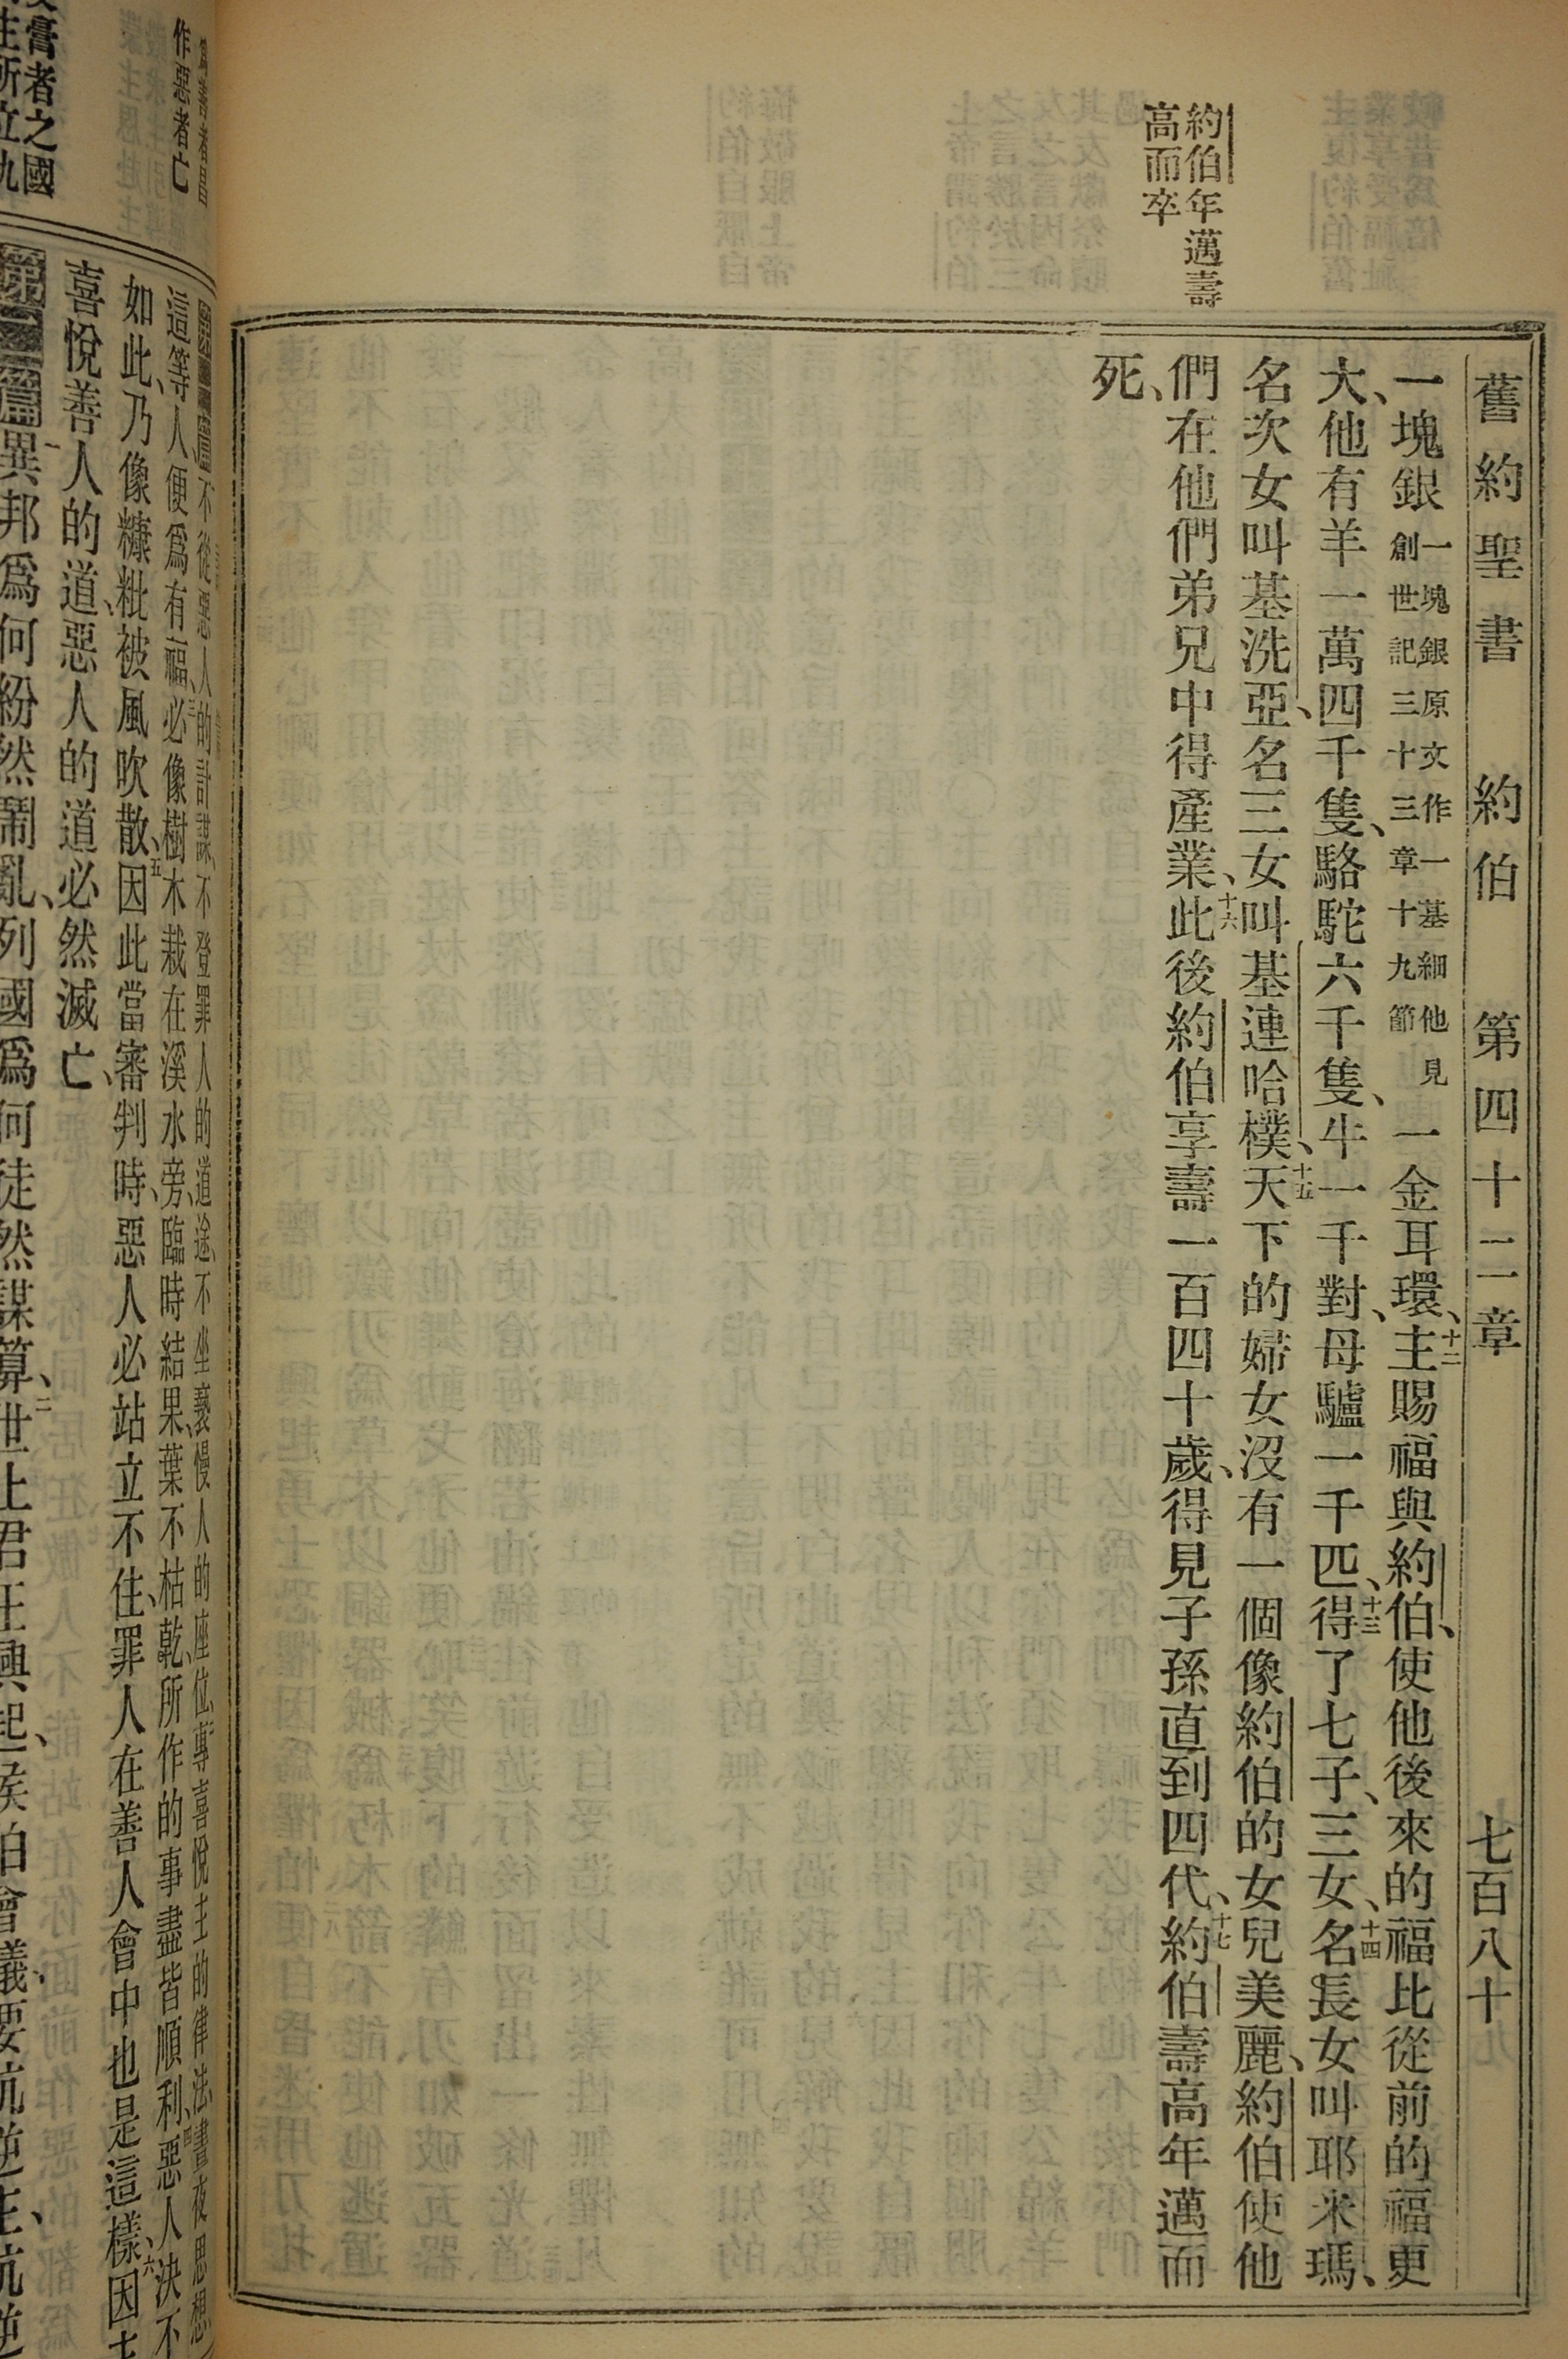 舊約聖書 約伯 第四十二章 七百八十
約伯年邁壽
高而卒
一塊銀一塊銀原文作一基細他見創世記三十三章十九節一金耳環、十二主賜福與約伯、使他後來的福比從前的福更
大、他有羊一萬四千隻、駱駝六千隻、牛一千對、母驢一千匹、十三得了七子、三女、十四名長女叫耶米瑪、
名次女叫基洗亞、名三女叫基連哈樸、十五天下的婦女沒有一個像約伯的女兒美麗、約伯使他
們在他們弟兄中得產業、十六此後約伯享壽一百四十歲、得見子孫直到四代、十七約伯壽高年邁而
死、
作惡者亡
不從惡人的計謀、不登罪人的道途、不坐褻慢人的座位、二專喜悅主的律法、晝夜思想、
這等人便為有福、三必像樹木栽在溪水旁、臨時結果、葉不枯乾、所作的事盡皆順利、四惡人決不
如此、乃像糠粃被風吹散、五因此當審判時、惡人必站立不住、罪人在善人會中也是這樣、六因主
喜悅善人的道、惡人的道必然滅亡、
膏者之國
第二篇 一異邦為何紛然鬧亂、列國為何徒然謀算、二世上君王興起、侯伯會議、要抗逆主、抗逆